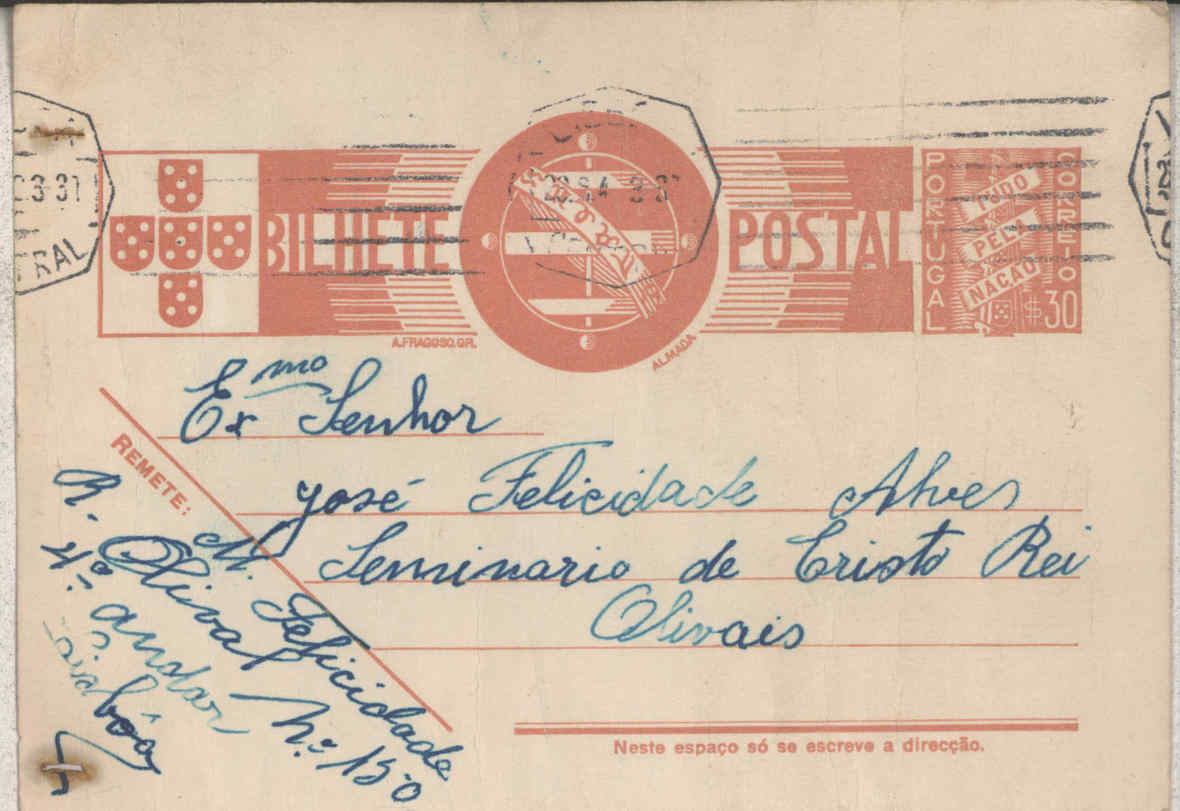 BILHETE POSTAL
PORTUGAL
CORREIO
TUDO
PELA
NAÇÃO
$30
A.FRAGOSO.GR.
ALMADA
Ex.mo Senhor
José Felicidade Alves
Seminario de Cristo Rei
Olivais
REMETE:
M. Felicidade
R. Olival n.º 150
4.º andar
Lisbôa
Neste espaço só se escreve a direcção.